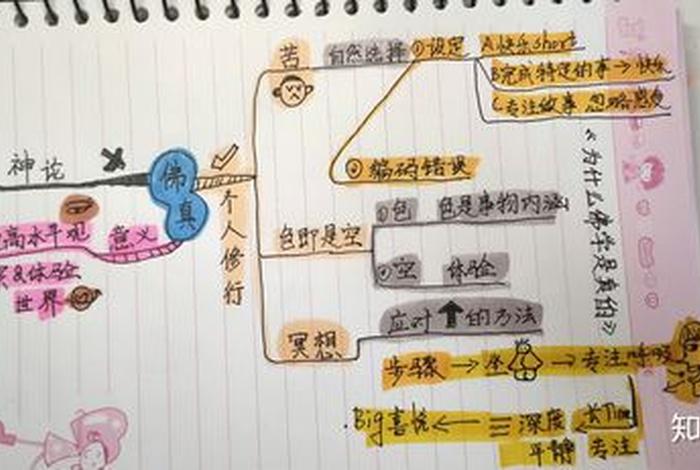 神论
佛
真
高水平观
意义
&体验
世界
个人修行
苦
自然选择
①设定
A.快乐short
B.完成特定的事→快乐
C.专注故事 忽略感受
②编码错误
色即是空
①色
色是事物内涵
②空
体验
冥想
应对↑的方法
步骤→坐→专注呼吸
长Time
专注
深度
平静
.Big喜悦←
《为什么佛学是真的》
知